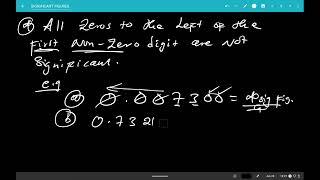 SIGNIFICANT FIGURES
All Zeros to the Left of the
First Non-Zero digit are Not
Significant.
e.g
(a) 0.007300 = sig fig.
(b) 0.7321